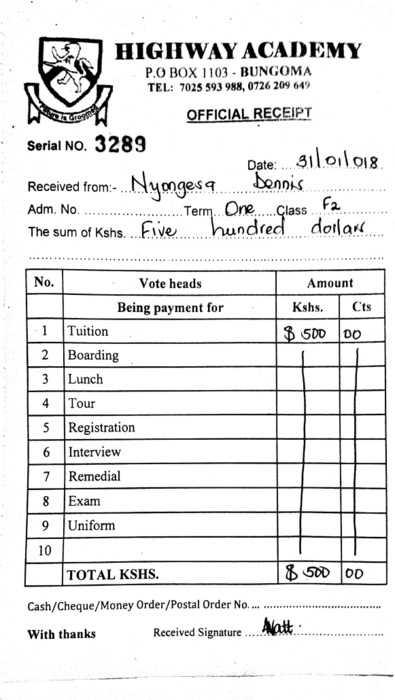 HIGHWAY ACADEMY
P.O BOX 1103 - BUNGOMA
TEL: 7025 593 988, 0726 209 649
OFFICIAL RECEIPT
Serial NO. 3289
Date: 31/01/018
Received from:- Nyongesa Dennis
Adm. No. .................. Term One Class F2
The sum of Kshs. Five hundred dollars
No. Vote heads Amount
Being payment for Kshs. Cts
1 Tuition $ 500 00
2 Boarding
3 Lunch
4 Tour
5 Registration
6 Interview
7 Remedial
8 Exam
9 Uniform
10
TOTAL KSHS. $ 500 00
Cash/Cheque/Money Order/Postal Order No. ...
With thanks Received Signature